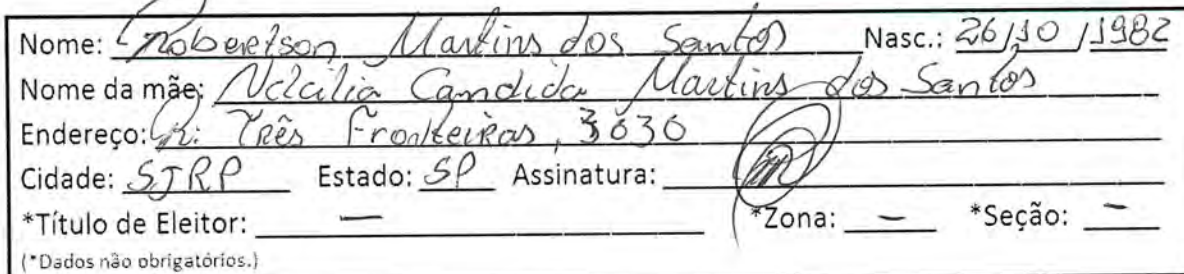 Nome: Robertson Martins dos Santos Nasc.: 26/10/1982
Nome da mãe: Candida Martins dos Santos
Endereço: R: Três Fronteiras, 3030
Cidade: SJRP Estado: SP Assinatura:
*Título de Eleitor: — *Zona: — *Seção: —
(*Dados não obrigatórios.)